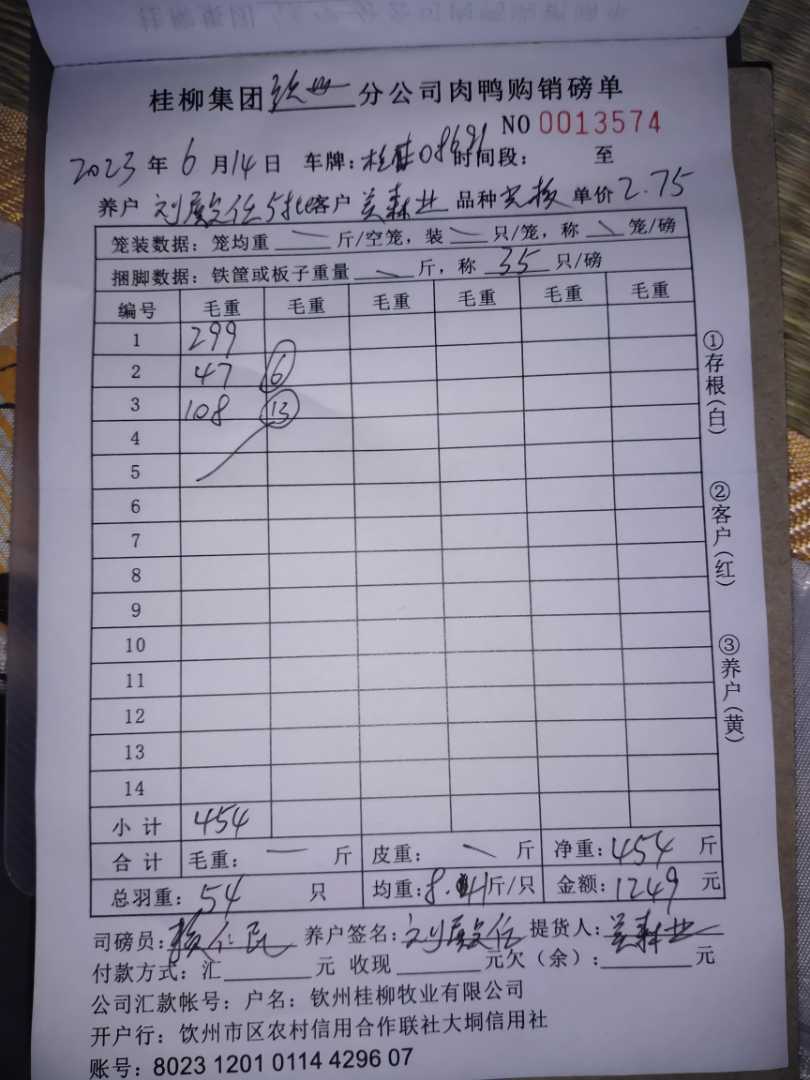 桂柳集团钦州分公司肉鸭购销磅单
NO 0013574
2023年6月14日 车牌: 时间段: 至
养户 客户 品种 单价2.75
笼装数据: 笼均重 斤/空笼, 装 只/笼, 称 笼/磅
捆脚数据: 铁筐或板子重量 斤, 称 35 只/磅
编号 毛重 毛重 毛重 毛重 毛重 毛重
1 299
2 47 6
3 108 13
4
5
6
7
8
9
10
11
12
13
14
小计 454
合计 毛重: 斤 皮重: 斤 净重: 454 斤
总羽重: 54 只 均重: 8.41斤/只 金额: 1249 元
司磅员: 养户签名: 提货人:
付款方式: 汇 元 收现 元欠(余): 元
公司汇款帐号: 户名: 钦州桂柳牧业有限公司
开户行: 钦州市区农村信用合作联社大垌信用社
账号: 8023 1201 0114 4296 07
①存根(白)
②客户(红)
③养户(黄)